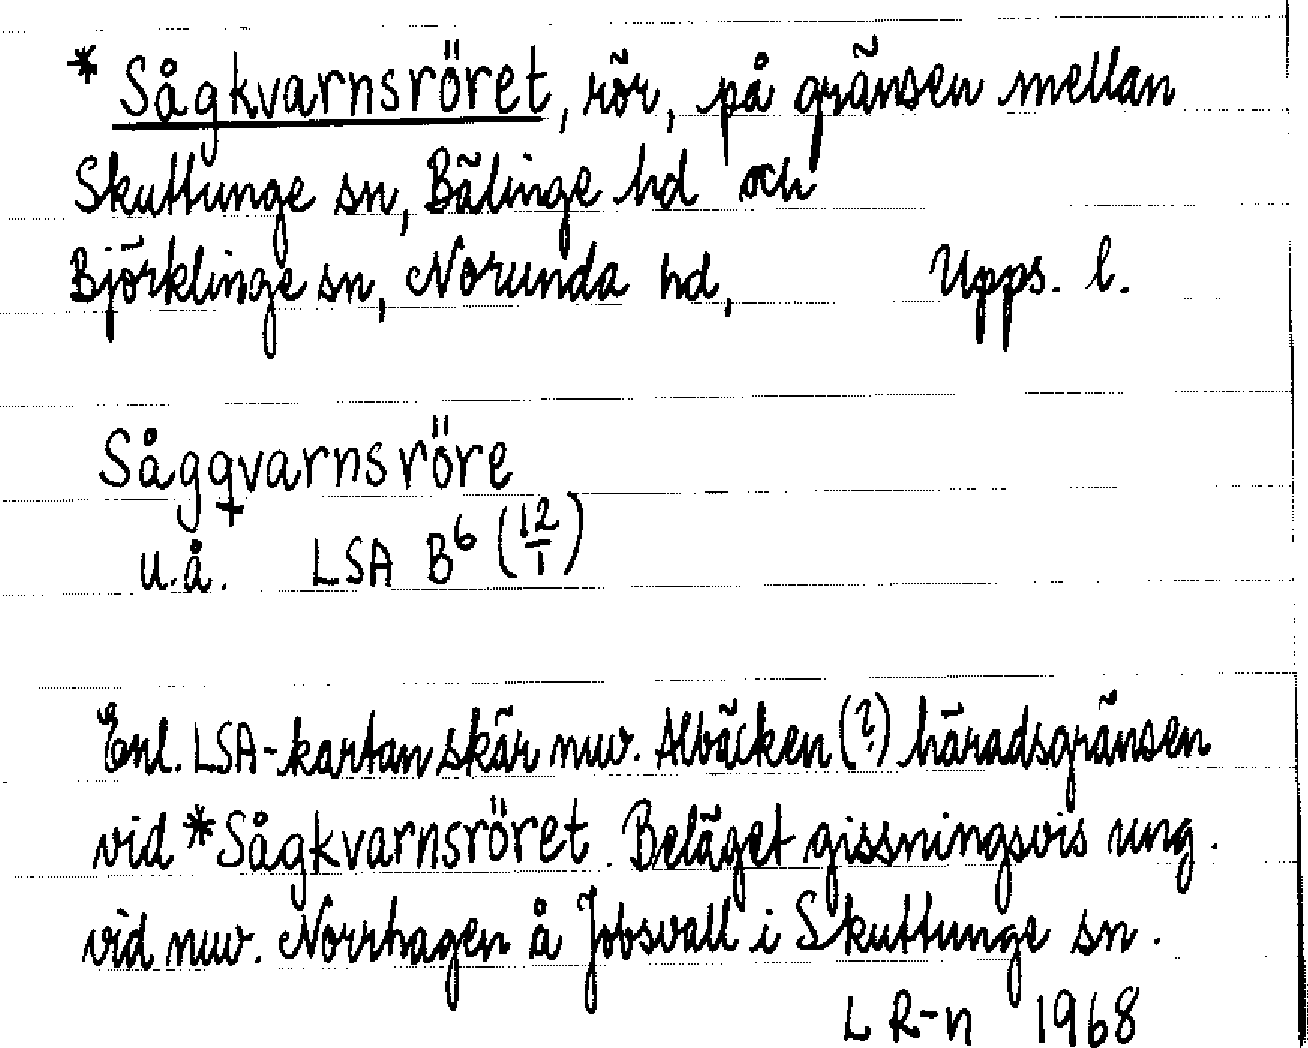 * Sågkvarnsröret, rör, på gränsen mellan
Skuttunge sn, Bälinge hd och
Björklinge sn, Norunda hd, Upps. l.
Sågqvarnsröre
u.å. LSA B⁶ (12/1)
Enl. LSA-kartan skär nuv. Albäcken (?) häradsgränsen
vid *Sågkvarnsröret. Beläget gissningsvis ung.
vid nuv. Norrhagen å Jobsvall i Skuttunge sn.
L R-n 1968